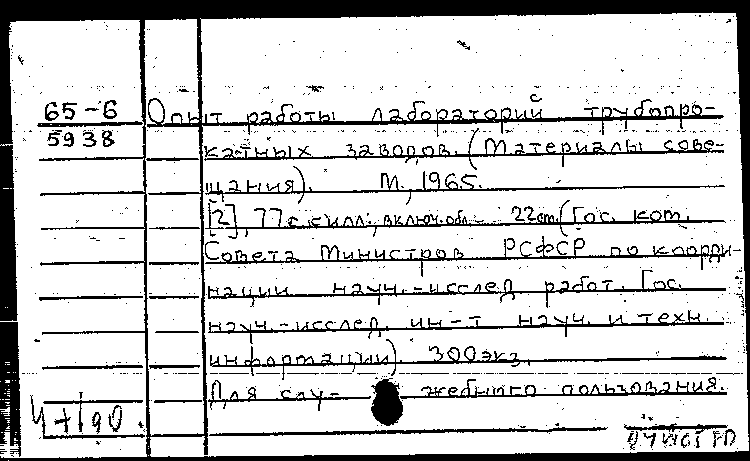 65-6 Опыт работы лабораторий трубопро-
5938 катных заводов. (Материалы сове-
щания). М., 1965.
[2], 77 с. с илл.; включ. обл. 22 см. (Гос. ком.
Совета Министров РСФСР по коорди-
нации науч.-исслед. работ. Гос.
науч.-исслед. ин-т науч. и техн.
информации). 300 экз.
Для слу- жебного пользования.